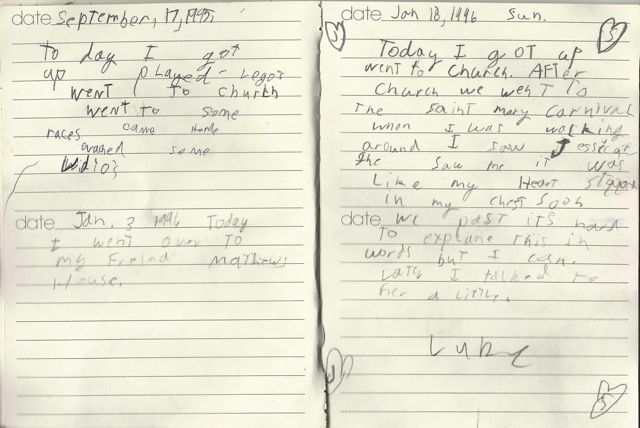 date September, 17, 1995,
To day I got
up played - Legos
went to church
went to some
races came home
wached some
date Jan. 3 1996 Today
I went over to
my Freind Mathews
House.
date Jan 18, 1996 Sun.
Today I got up
went to church. After
church we went to
the saint mary Carnival
when I was walking
around I saw Jessica
she saw me it was
Like my Heart stopped
in my chest sooh
date we past its hard
to explane this in
words but I can.
Later I talked to
her a little.
Luke